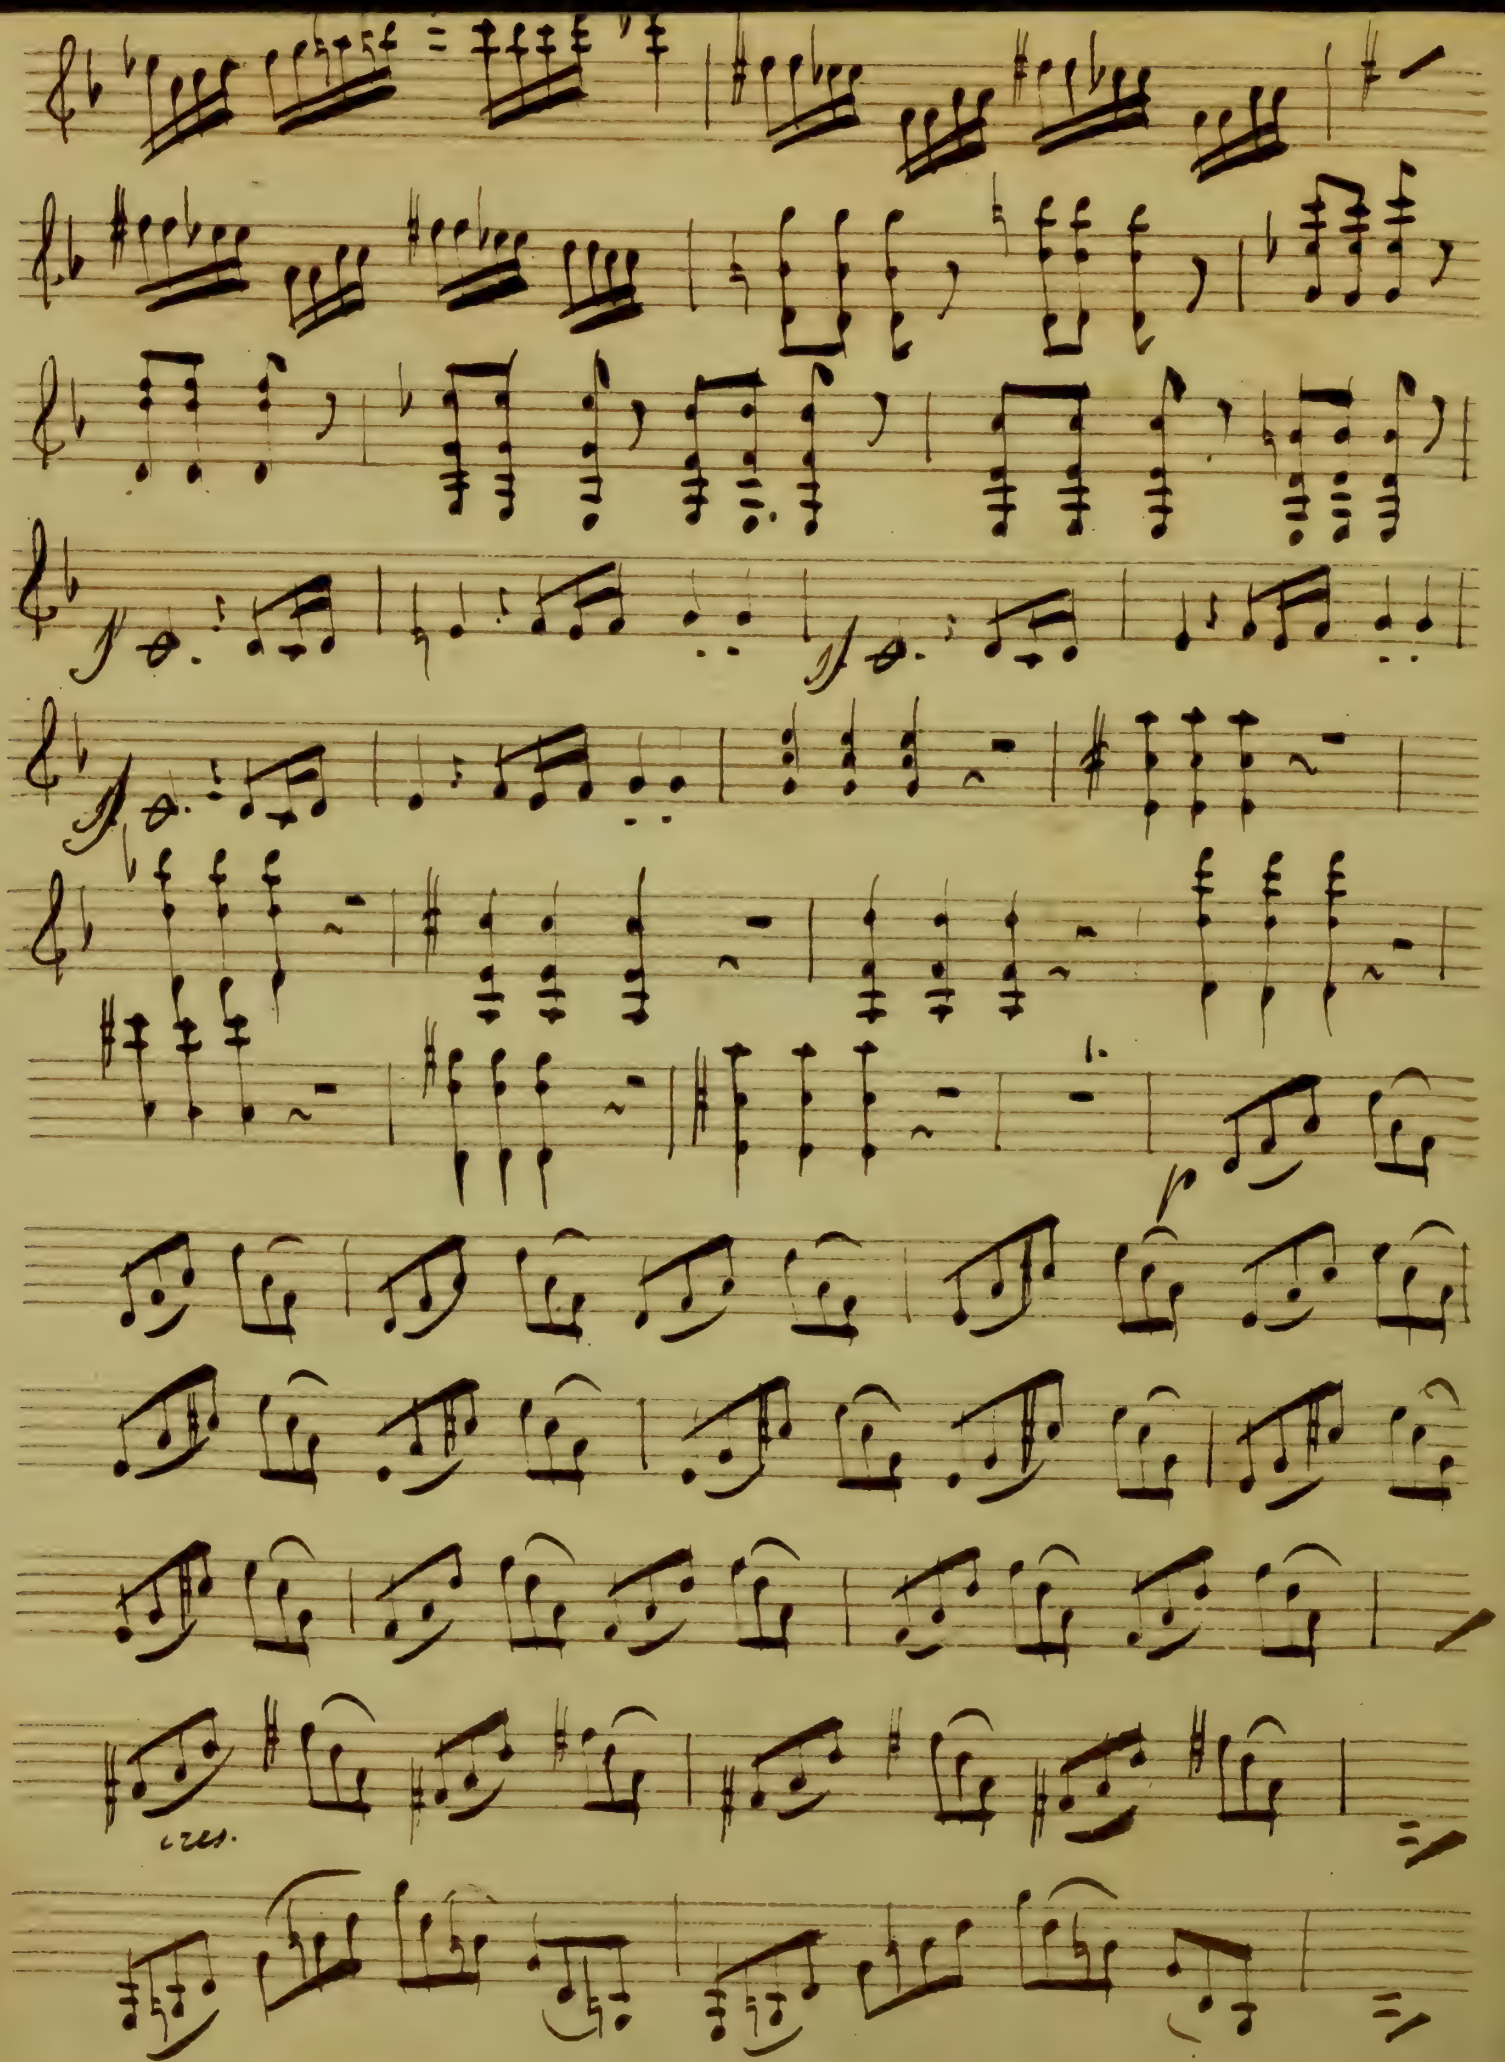 1.
p
cres.